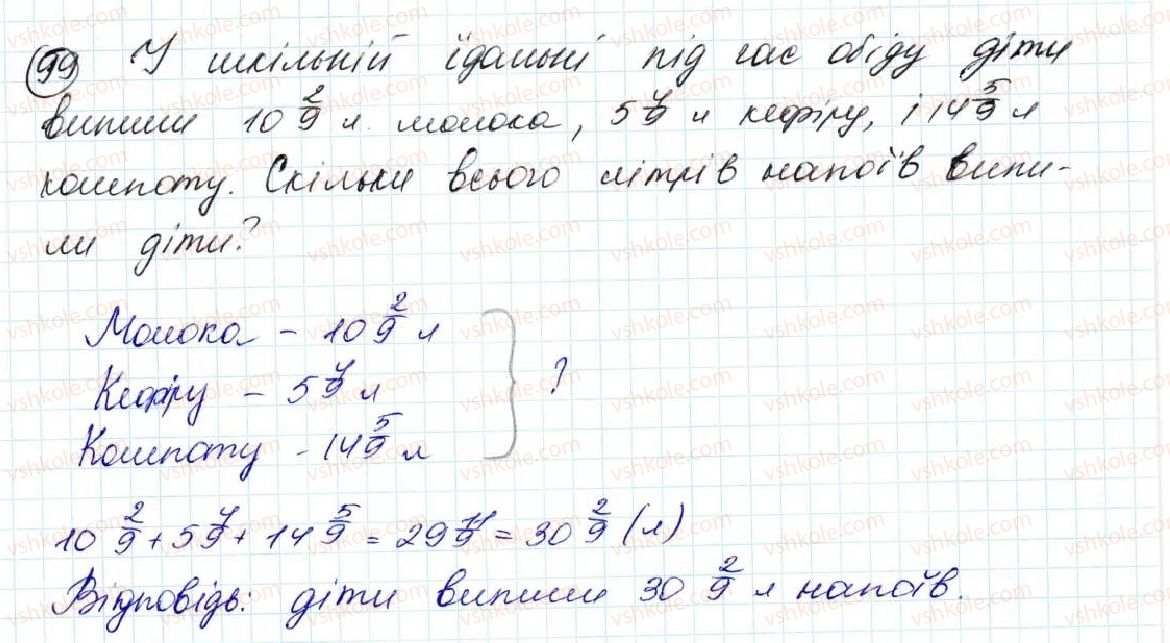 99 У шкільній їдальні під час обіду діти
випили 10 2/9 л молока, 5 4/9 л кефіру, і 14 5/9 л
компоту. Скільки всього літрів напоїв випи-
ли діти?
Молока - 10 2/9 л
Кефіру - 5 4/9 л
?
Компоту - 14 5/9 л
10 2/9 + 5 4/9 + 14 5/9 = 29 11/9 = 30 2/9 (л)
Відповідь: діти випили 30 2/9 л напоїв.
vshkole.com